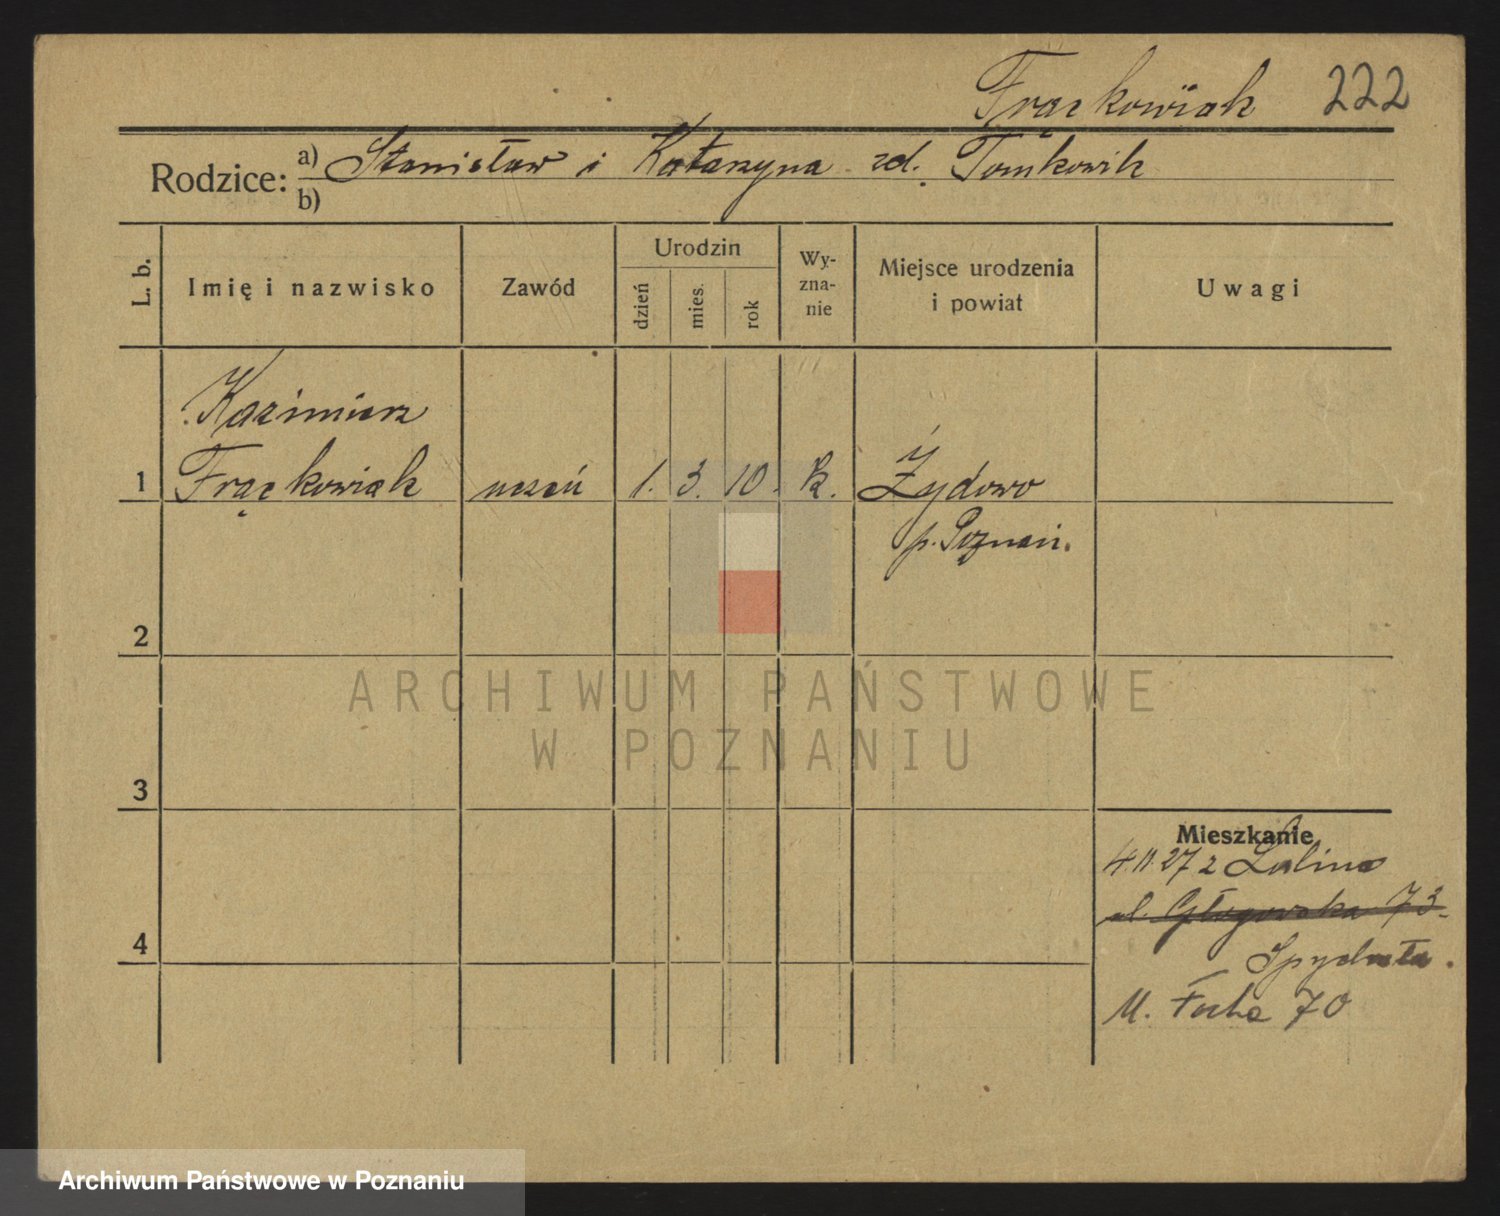 Frąckowiak 222
Rodzice: a) Stanisław i Katarzyna zd. Tomkowik
b)
L. b. Imię i nazwisko Zawód Urodzin dzień mies. rok Wy-zna-nie Miejsce urodzenia i powiat Uwagi
Kazimierz
1 Frąckowiak uczeń 1. 3. 10. k. Żydowo
p. Poznań.
2
ARCHIWUM PAŃSTWOWE
W POZNANIU
3
Mieszkanie
4. 11. 27 z
ul. Głogowska 73
4
M. Focha 70
Archiwum Państwowe w Poznaniu